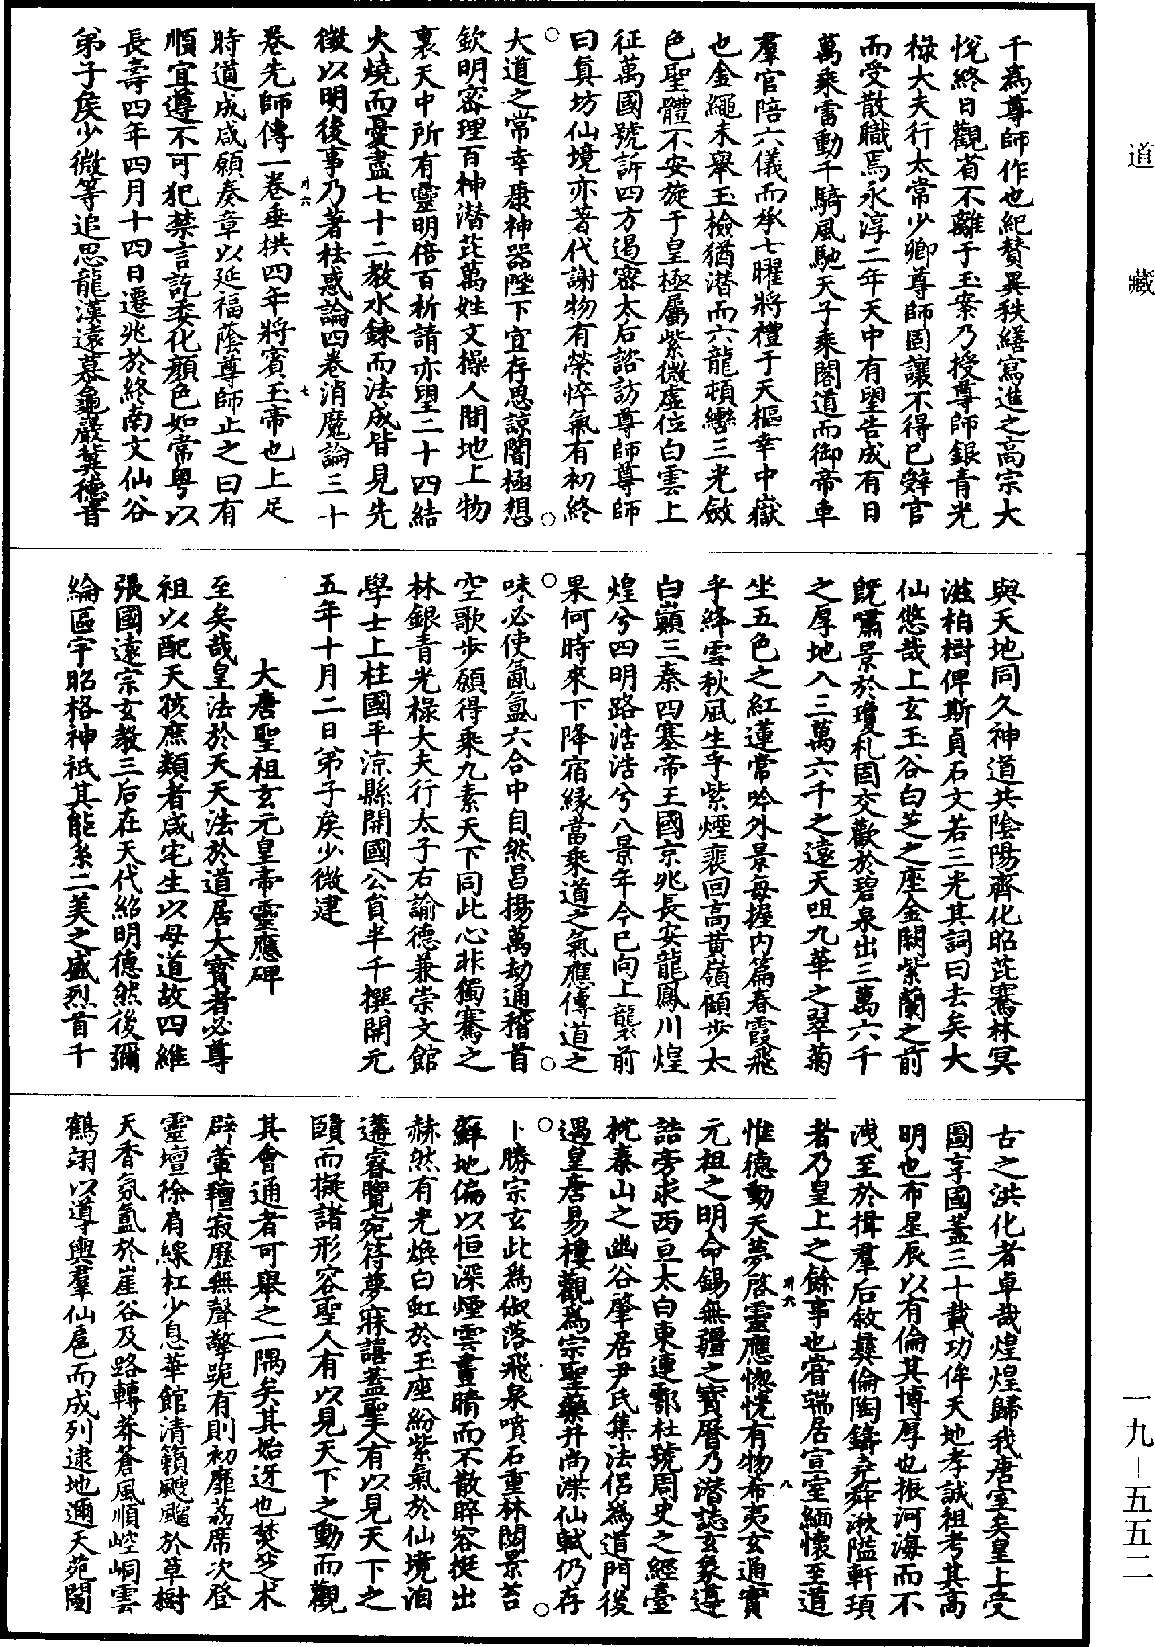 道藏
千爲尊師作也紀贊異秩繕寫進之高宗大
悅終日觀省不離于玉案乃授尊師銀青光
祿大夫行太常少卿尊師固讓不得已辭官
而受散職焉永淳二年天中有望告成有日
萬乘雷動千騎風馳天子乘閣道而御帝車
羣官陪六儀而承七曜將禮于天樞幸中嶽
也金繩未舉玉檢猶潛而六龍頓轡三光斂
色聖體不安旋于皇極屬紫微虛位白雲上
征萬國號訴四方遏密太后諮訪尊師尊師
曰真坊仙境亦著代謝物有榮悴氣有初終
大道之常幸康神器陛下宜存思諒闇極想
欽明審理百神潛茈萬姓文操人間地上物
裏天中所有靈明倍百祈請亦望二十四結
火燒而憂盡七十二教水鍊而法成皆見先
徵以明後事乃著袪惑論四卷消魔論三十
卷先師傳一卷垂拱四年將賓玉帝也上足
時道成咸願奏章以延福蔭尊師止之曰有
順宜遵不可犯禁言訖委化顏色如常粵以
長壽四年四月十四日遷兆於終南文仙谷
弟子侯少微等追思龍漢遠慕龜巖冀德音
與天地同久神道共陰陽齊化昭茈騫林冥
滋柏樹俾斯貞石文若三光其詞曰去矣大
仙悠哉上玄玉谷白芝之座金闕紫蘭之前
既嘯景於瓊札固交歡於碧泉出三萬六千
之厚地入三萬六千之遠天咀九華之翠菊
坐五色之紅蓮常吟外景每握內篇春霞飛
乎絳雪秋風生乎紫煙裴回高黃嶺顧步太
白巔三秦四塞帝王國京兆長安龍鳳川煌
煌兮四明路浩浩兮八景年今已向上襲前
果何時來下降宿緣當乘道之氣應傳道之
味必使氤氳六合中自然昌揚萬劫通稽首
空歌步願得乘九素天下同此心非獨騫之
林銀青光祿大夫行太子右諭德兼崇文館
學士上柱國平涼縣開國公員半千撰開元
五年十月二日弟子侯少微建
大唐聖祖玄元皇帝靈應碑
至矣哉皇法於天天法於道居大寶者必尊
祖以配天孩庶類者咸宅生以母道故四維
張國遠宗玄教三后在天代紹明德然後彌
綸區宇昭格神祇其能系二美之盛烈首千
古之洪化者卓哉煌煌歸我唐室矣皇上受
圖享國蓋三十載功侔天地孝誠祖考其高
明也布星辰以有倫其博厚也振河海而不
洩至於揖羣后敘彝倫陶鑄堯舜湫隘軒頊
者乃皇上之餘事也嘗端居宣室緬懷至道
惟德動天夢啓靈應惚恍有物希夷玄通實
元祖之明命錫無疆之寶曆乃潛誌玄象遵
誥旁求西亘太白東連鄠杜號周史之經臺
枕秦山之幽谷肇居尹氏集法侶爲道門後
遇皇唐易樓觀爲宗聖藥井尚渫仙軾仍存
卜勝宗玄此爲俶落飛泉噴石重林閟景苔
蘚地偏以恒深煙雲晝晴而不散睟容挺出
赫然有光煥白虹於玉座紛紫氣於仙境洎
遘睿覽宛符夢寐譆蓋聖人有以見天下之
賾而擬諸形容聖人有以見天下之動而觀
其會通者可舉之一隅矣其始迓也焚芝术
辟葷羶寂歷無聲擎跪有則初靡荔席次登
靈壇徐肩線杠少息華館清籟颼飀於草樹
天香氛氳於崖谷及路轉莽蒼風順崆峒雲
鶴翊以導輿羣仙扈而成列逮地邇天苑閶
卅六
七
卅六
八
一九—五五二